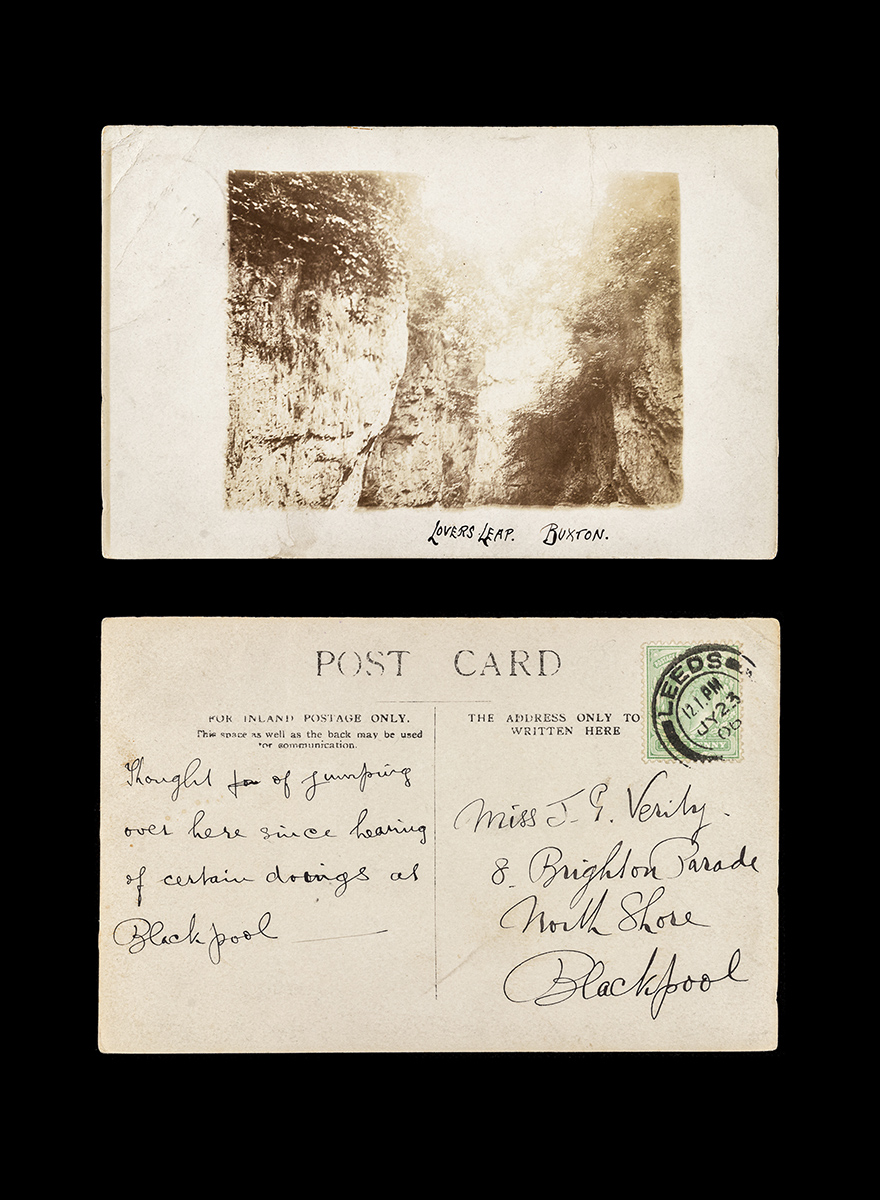 LOVERS LEAP. BUXTON.
POST CARD
FOR INLAND POSTAGE ONLY.
This space as well as the back may be used
for communication.
THE ADDRESS ONLY TO
WRITTEN HERE
LEEDS
12.1.PM
JY 23
06
NNY
Thought of jumping
over here since hearing
of certain doings at
Blackpool
Miss J. G. Verity.
8. Brighton Parade
North Shore
Blackpool